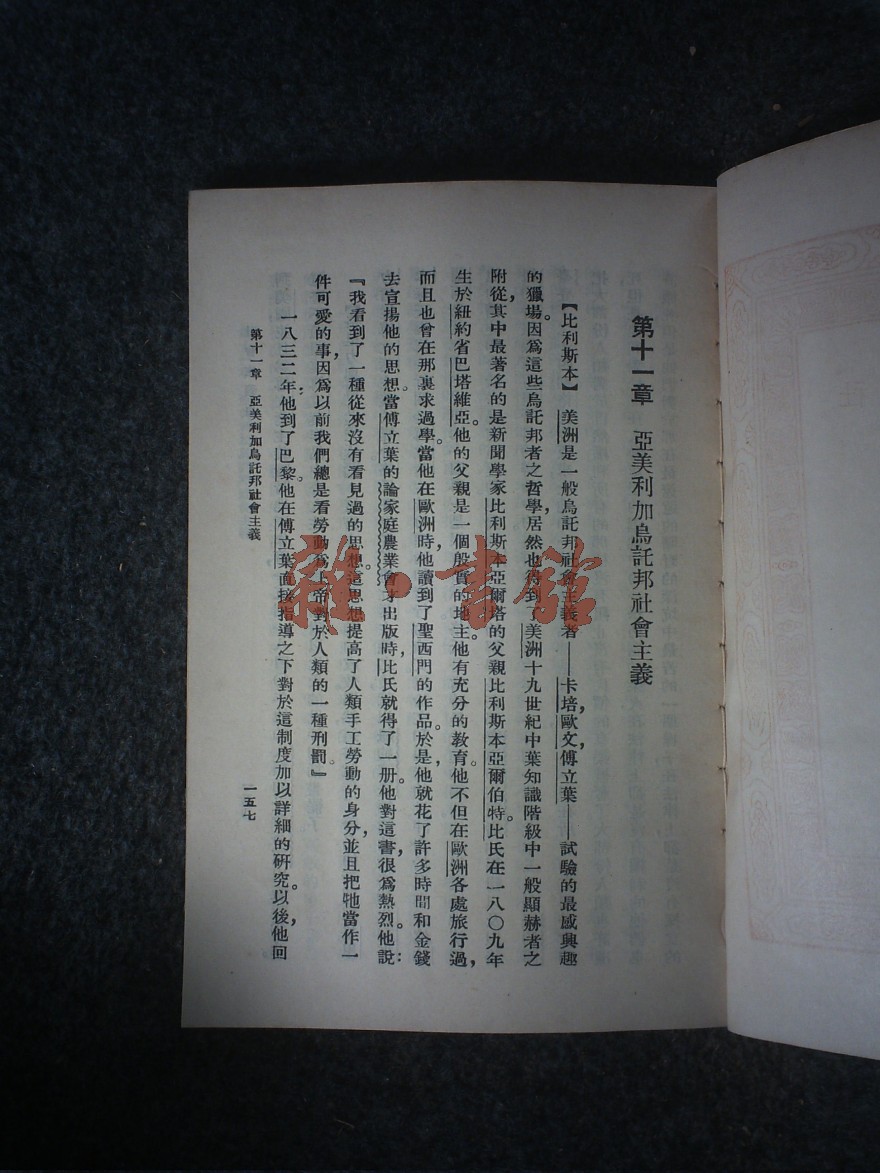 第十一章　亞美利加烏託邦社會主義
【比利斯本】　美洲是一般烏託邦社會主義者——卡培，歐文，傅立葉——試驗的最感興趣
的獵場。因爲這些烏託邦者之哲學，居然也得到了美洲十九世紀中葉知識階級中一般顯赫者之
附從，其中最著名的是新聞學家比利斯本亞爾塔的父親比利斯本亞爾伯特。比氏在一八〇九年
生於紐約省巴塔維亞。他的父親是一個殷實的地主。他有充分的教育。他不但在歐洲各處旅行過，
而且也曾在那裏求過學。當他在歐洲時，他讀到了聖西門的作品。於是，他就花了許多時間和金錢
去宣揚他的思想。當傅立葉的論家庭農業會才出版時，比氏就得了一册。他對這書，很爲熱烈。他說：
『我看到了一種從來沒有看見過的思想。這思想提高了人類手工勞動的身分，並且把牠當作一
件可愛的事，因爲以前我們總是看勞動爲上帝對於人類的一種刑罰。』
一八三二年，他到了巴黎。他在傅立葉面接指導之下，對於這制度加以詳細的研究。以後他回
第十一章　亞美利加烏託邦社會主義
一五七
雜·書館